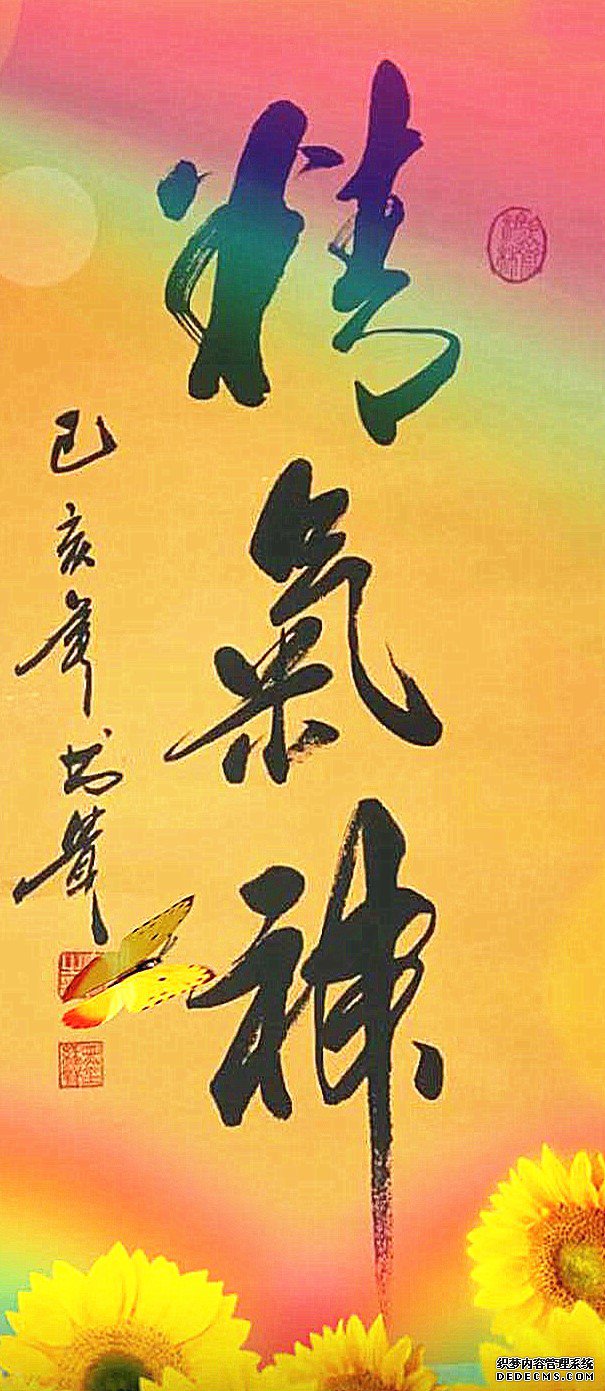 精
氣
神
己亥年
织梦内容管理系统
DEDECMS.COM